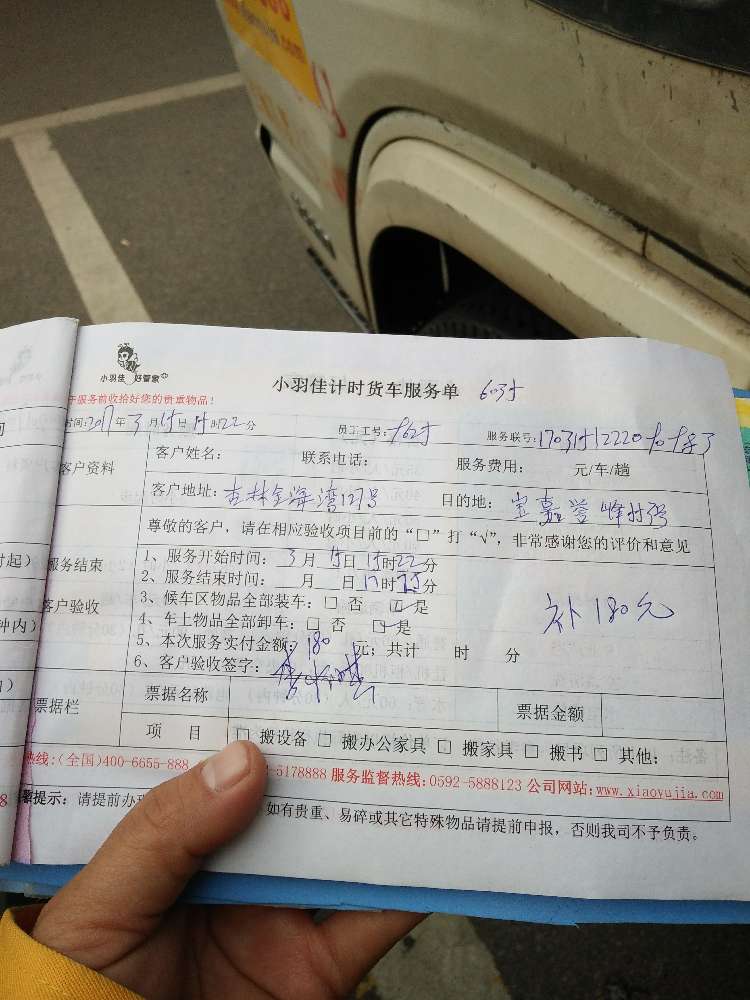 小羽佳 好管家
小羽佳计时货车服务单
于服务前收给好您的贵重物品!
时间:2017年3月15日15时22分 员工工号: 服务联号:
客户资料 客户姓名: 联系电话: 服务费用: 元/车/趟
客户地址:杏林金海湾127号 目的地:宝嘉誉峰
尊敬的客户,请在相应验收项目前的“□”打“√”,非常感谢您的评价和意见
服务结束
客户验收
1、服务开始时间:3月15日15时22分
2、服务结束时间: 月 日17时25分
3、候车区物品全部装车:□ 否 ☑ 是
4、车上物品全部卸车:□ 否 ☑ 是
补180元
5、本次服务实付金额:180元;共计 时 分
6、客户验收签字:
票据栏 票据名称 票据金额
项 目 □ 搬设备 □ 搬办公家具 □ 搬家具 □ 搬书 □ 其他:
热线:(全国)400-6655-888 5178888 服务监督热线:0592-5888123 公司网站:www.xiaoyujia.com
提示:请提前办 如有贵重、易碎或其它特殊物品请提前申报,否则我司不予负责。